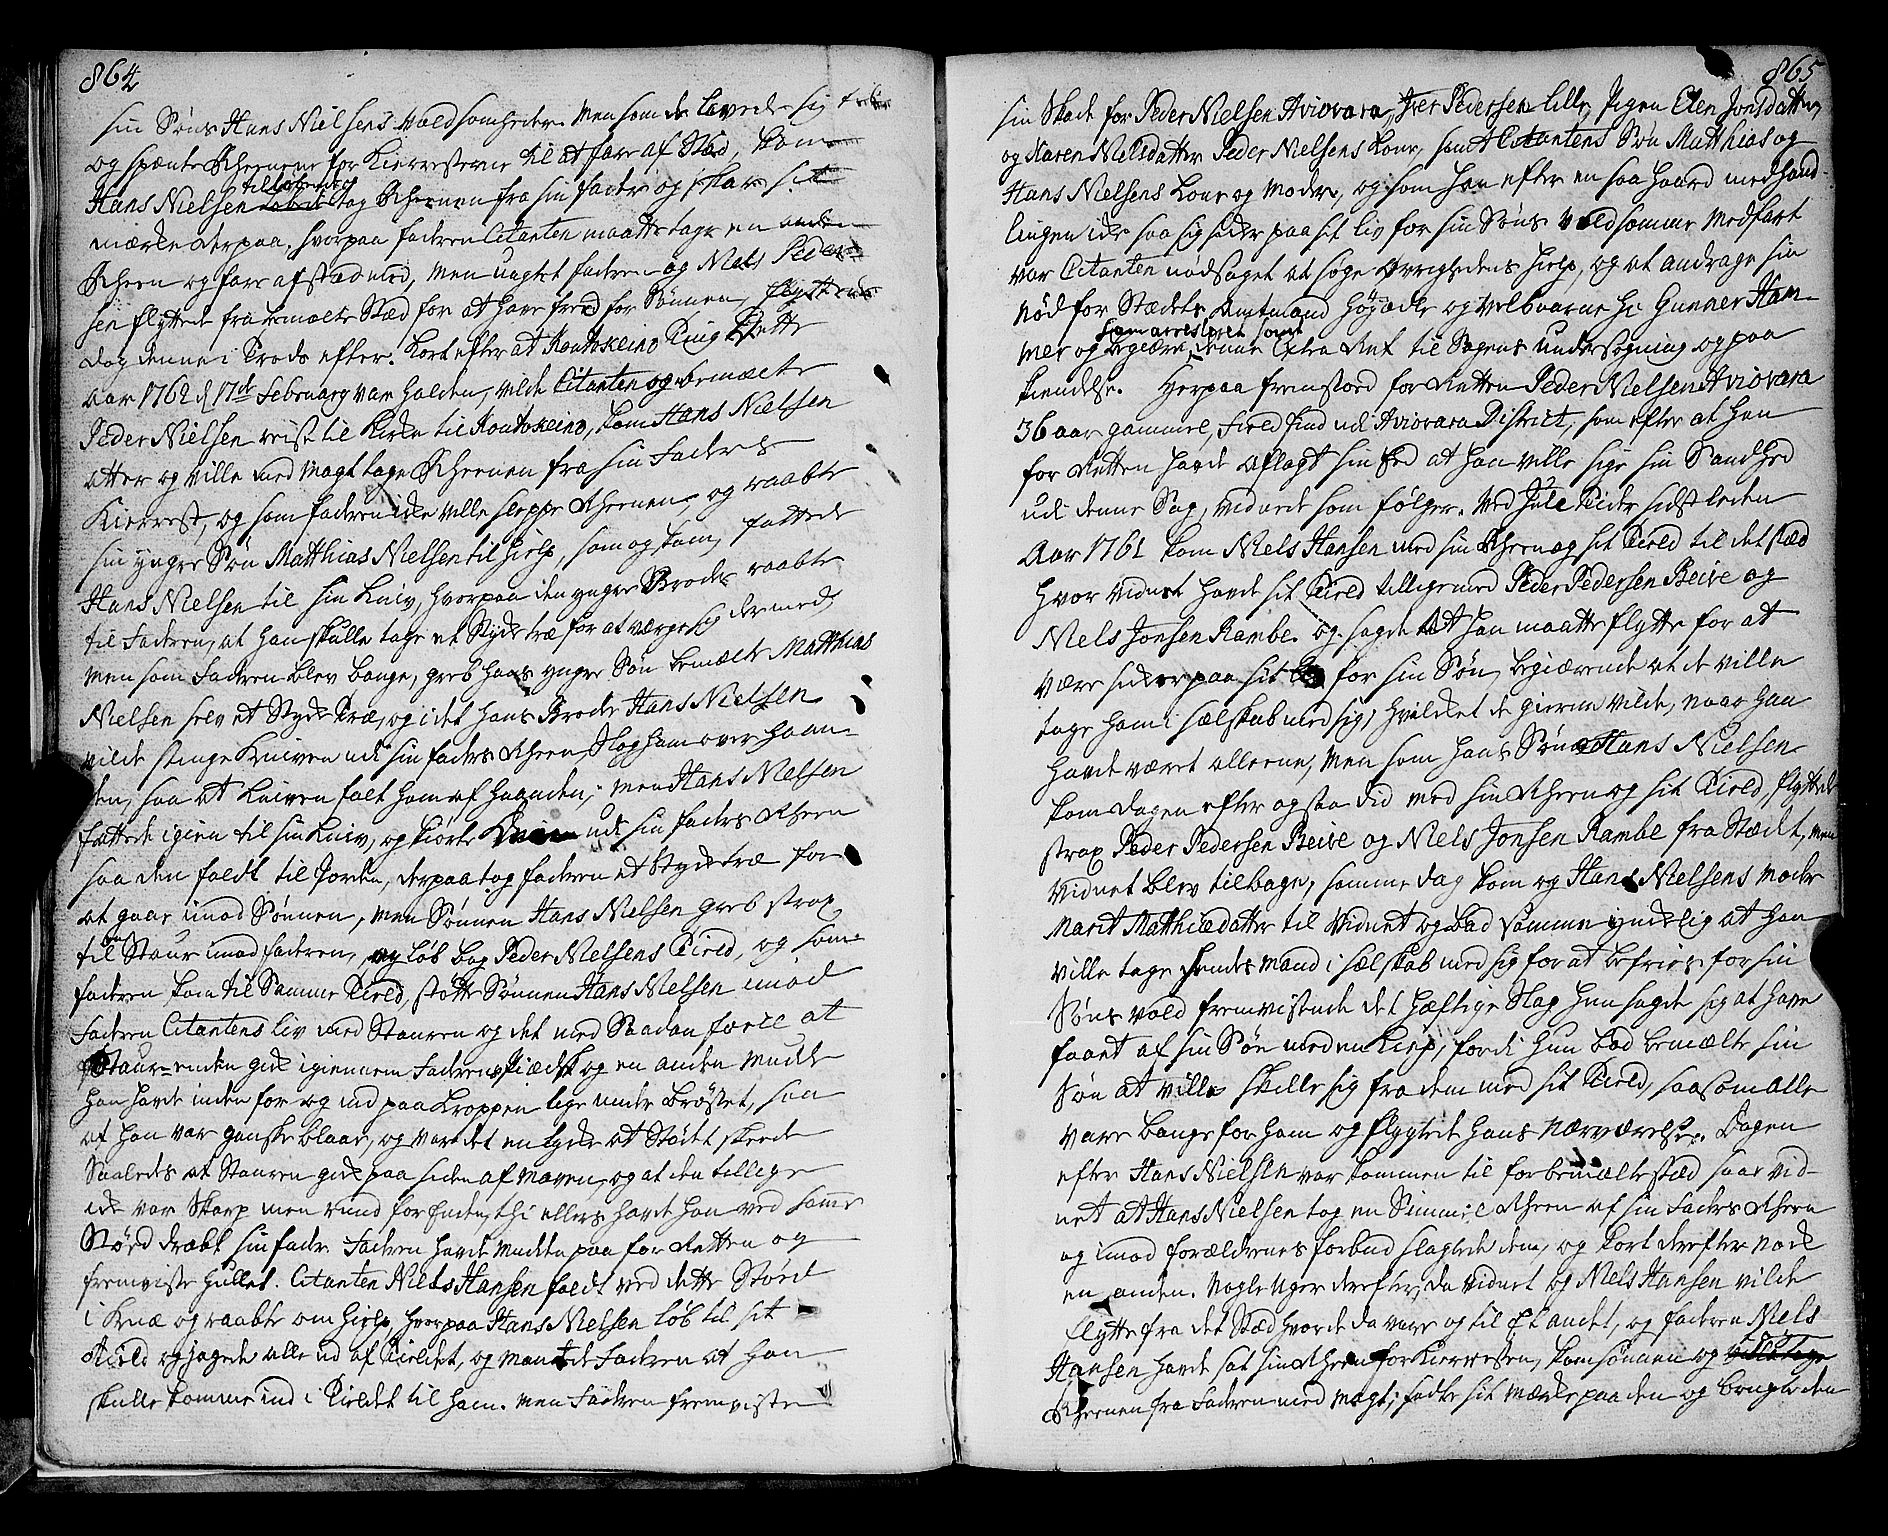 864
sin Søns Hans Nielsens Voldsomheder. Men som de lavede sig
og spænte Rheenene for Kierresterne til at fare af Stæd, kom
Hans Nielsen tog Rheenen fra sin fader og skar sit
mærke derpaa. hvorpaa faderen Citanten maatte tage en anden
Rheen og fare afstæd med, men uagtet faderen og Niels Peder-
sen flyttede fra bemælte Stæd for at have fred for Sønnen, flyttede
dog denne i Trods efter. Kort efter at Koutokeino Ting Rette
Aar 1762 d 17de Februarij var holden, vilde Citanten og bemælte
Peder Nielsen reise til Kirke til Koutokeino, kom Hans Nielsen
atter og ville med Magt tage Rheenen fra sin Faders
Kierrest, og som faderen icke ville sleppe Rheenen, og raabte
sin yngre Søn Matthias Nielsen til hielp, som og kom, fattede
Hans Nielsen til sin Kniv, hvorpaa den yngre Broder raabte
til Faderen, at han skulle tage et Stycke træ for at værge sig dermed
Men som Faderen blev bange, greb hans yngre Søn bemælte Matthias
Nielsen selv et Stycke Træ, og i det hans Broder Hans Nielsen
vilde stinge Kniven udi sin faders Rheen, slog ham over Haan-
den, saa at Kniven falt ham af Haanden; men Hans Nielsen
fattede igien til sin Kniv, og kiørte udi sin faders Rheen
saa den faldt til Jorden, derpaa tog faderen et Stycke træ for
at gaae imod Sønnen, men Sønnen Hans Nielsen greb strax
til en Staur imod faderen, og løb bag Peder Nielsens Tield, og som
faderen kom til Samme Tield, støtte Sønnen Hans Nielsen imod
Faderen Citantens liv med Stauren og det med Saadan force at
Staur-enden gick igiennem Faderens Piæsk og en anden Mudd
han havde inden for og ind paa Kroppen lige under Brøstet, saa
at han var ganske blaae, og var det en lycke at Stødet skeede
Saaledes at Stauren gick paa siden af Maven, og at den tillige
icke var Skarp men rund for Enden, thi ellers havde han ved samme
Stød dræbt sin fader. Faderen havde Mudden paa for Retten og
fremviiste Hullet. Citanten Niels Hansen faldt ved dette Stød
i Knæ og raabte om hielp, hvorpaa Hans Nielsen løb til sit
Tield og jagede alle ud af Tieldet, og manede Faderen at han
skulle komme ind i Tieldet til ham. Men Faderen fremviiste
865
sin Skade for Peder Nielsen Aviovara, Iver Pedersen lille, Pigen Elen Jonsdatter,
og Karen Nielsdatter Peder Nielsens Kone, samt Citantens Søn Matthias og
Hans Nielsens Kone og Moder, og som han efter en saa haard medhand-
lingen icke saa sig sicker paa sit liv for sin Søns Voldsomme Medfart
var Citanten nødsaget at søge Øvrighedens hielp, og at andrage sin
nød for Stædets Amtmand Høyædle og velbaarne Hr Gunner Ham-
mer og begiære denne Extra Ret til Sagens Undersøgning og paa
kiendelse. Herpaa fremstoed for Retten Peder Nielsen Aviovara
36 aar gammel, Field find udi Aviovara District, som efter at han
for Retten havde aflagt sin Eed at han ville sige sin Sandhed
udi denne Sag, vidnede som følger. Ved Jule Tider sidst leden
Aar 1761 kom Niels Hansen med sin Rheen og sit Tield til det stæd
hvor Vidnet havde sit Tield tillige med Peder Pedersen Beive og
Niels Jonsen Rambe. og sagde at han maatte flytte for at
være sicker paa sit for sin Søn, begiærende at de ville
tage ham i sælskab med sig, hvilcket de gierne vilde, naar han
havde været alleene, men som hans Søn Hans Nielsen
kom dagen efter og saa did med sin Rheen og sit Tield, flyttede
strax Peder Pedersen Beive og Niels Jonsen Rambe fra Stædet, men
Vidnet blev tilbage, samme dag kom og Hans Nielsens Moder
Marit Matthiædatter til Vidnet og bad samme yndelig at han
ville tage hendes Mand i sælskab med sig for at befries for sin
Søns vold fremvisende det hæftige Slag hun sagde sig at have
faaet af sin Søn med en Kiep, fordi hun bad bemælte sin
Søn at ville skille sig fra dem med sit Tield, saasom alle
vare bange for ham og flygtede hans Nærværelse. Dagen
efter Hans Nielsen var kommen til forbemælte stæd saae Vid-
net at Hans Nielsen tog en Simmil Rheen af sin Faders Rheen
og imod forældrenes forbud slagtede dem, og kort derefter nock
en anden. Nogle Uger derefter, da Vidnet og Niels Hansen vilde
flytte fra det Stæd hvor de da vare og til Et andet, og faderen Niels
Hansen havde sat sin Rheen for Kierresten, kom sønnen og
Rheenen fra Faderen med Magt, satte sit Mærke paa den og brugte den